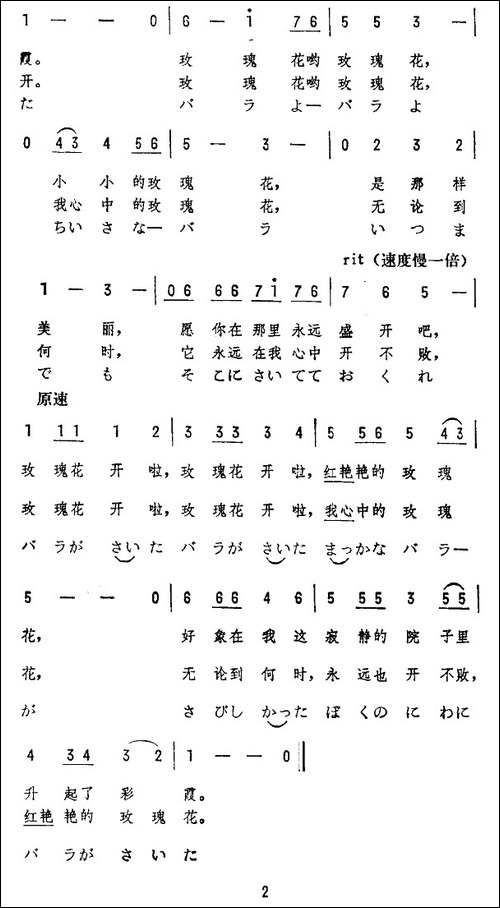 1 — — 0 | 6 — i 76 | 5 5 3 — |
霞。 玫 瑰 花哟 玫 瑰 花,
开。 玫 瑰 花哟 玫 瑰 花,
た バ ラ よー バ ラ よ
0 43 4 56 | 5 — 3 — | 0 2 3 2 |
小 小 的玫 瑰 花, 是 那 样
我心 中 的玫 瑰 花, 无 论 到
ちい さ なー バ ラ い つ ま
rit (速度慢一倍)
1 — 3 — | 06 66 71 76 | 7 6 5 — |
美 丽, 愿 你在 那里 永远 盛 开 吧,
何 时, 它 永远 在我 心中 开 不 败,
で も そ こに さい てて お く れ
原速
1 11 1 2 | 3 33 3 4 | 5 56 5 43 |
玫 瑰花 开 啦, 玫 瑰花 开 啦, 红艳 艳的 玫 瑰
玫 瑰花 开 啦, 玫 瑰花 开 啦, 我心 中的 玫 瑰
バ ラが さい た バ ラが さい た まっ かな バ ラー
5 — — 0 | 6 66 4 6 | 5 55 3 55 |
花, 好 象在 我 这 寂 静的 院 子里
花, 无 论到 何 时, 永 远也 开 不败,
が さ びし かっ た ぼ くの に わに
4 34 3 2 | 1 — — 0 ‖
升 起了 彩 霞。
红艳 艳的 玫 瑰 花。
バ ラが さ い た
2